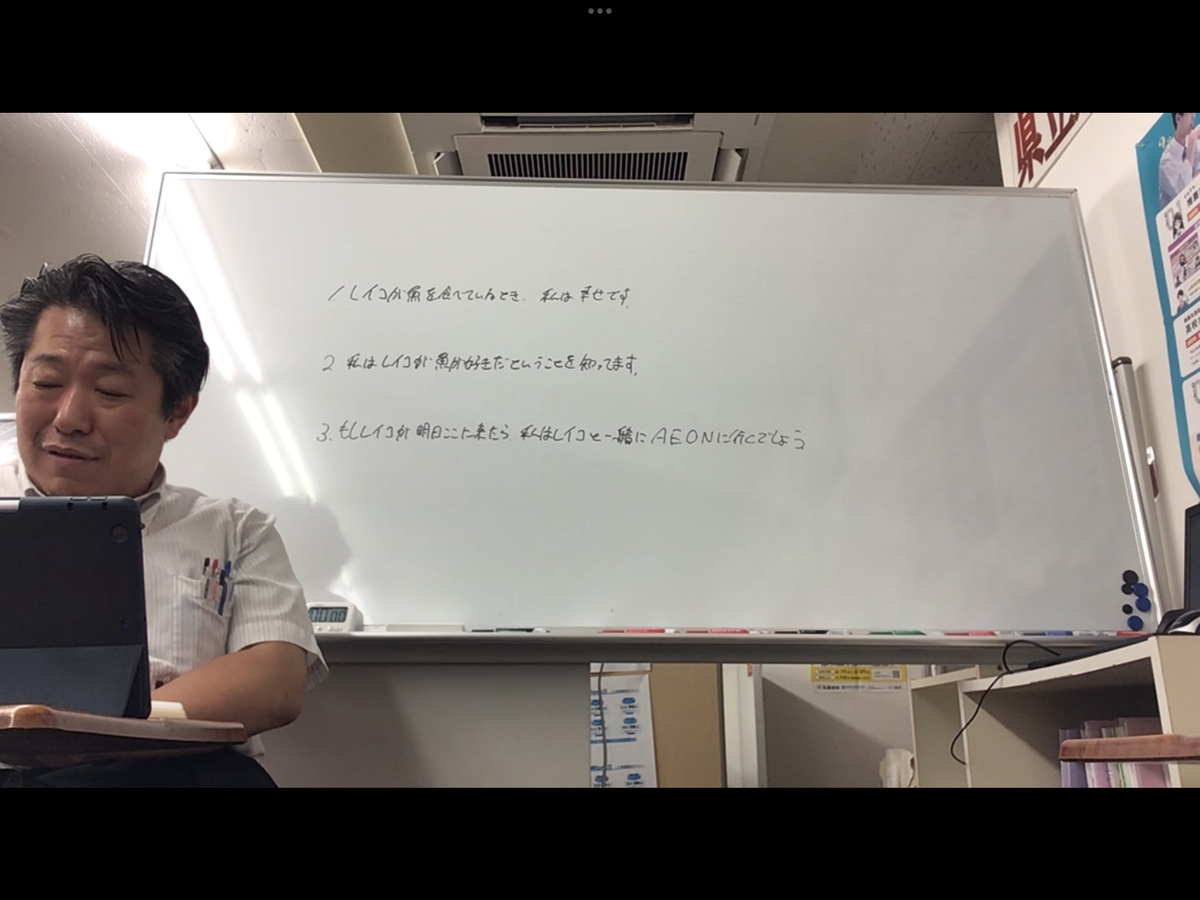 県立
1 レイコが魚を食べているとき、私は幸せです。
2 私はレイコが魚が好きだということを知ってます。
3. もしレイコが明日ここに来たら 私はレイコと一緒にAEONに行くでしょう